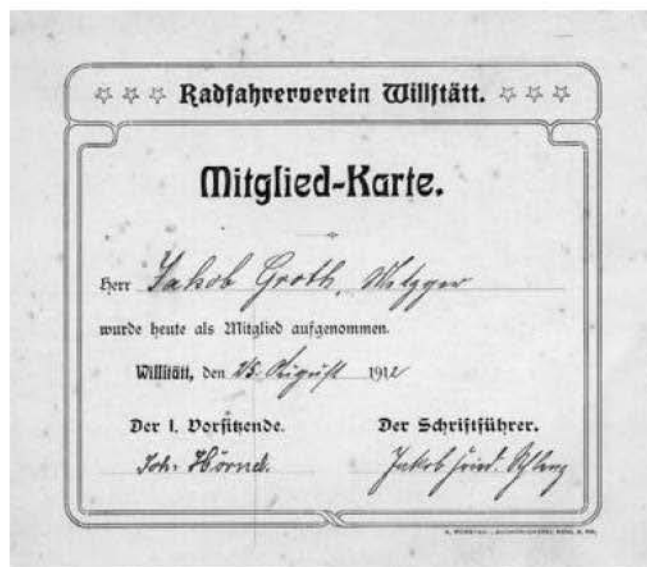 Radfahrerverein Willstätt.
Mitglied-Karte.
Herr Jakob Groth, Metzger
wurde heute als Mitglied aufgenommen.
Willstätt, den 25. August 1912
Der I. Vorsitzende. Der Schriftführer.
Joh. Hörnel. Jakob Fried.